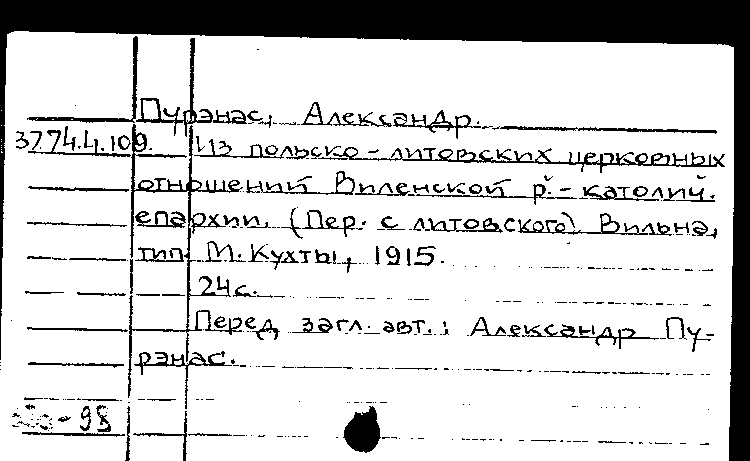 Пурэнас, Александр.
37.74.4.109. Из польско-литовских церковных
отношений Виленской р.-католич.
епархии. (Пер. с литовского). Вильна,
тип. М. Кухты, 1915.
24 с.
Перед загл. авт.: Александр Пу-
рэнас.
-98